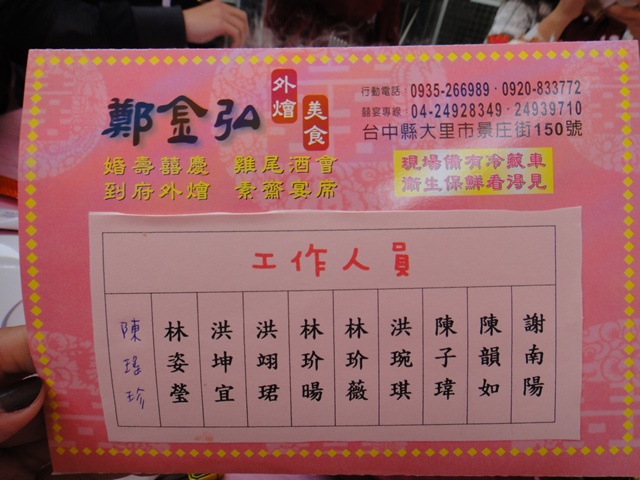 鄭金弘
外燴
美食
行動電話：0935-266989·0920-833772
囍宴專線：04-24928349·24939710
台中縣大里市景庄街150號
婚壽囍慶 雞尾酒會
到府外燴 素齋宴席
現場備有冷藏車
衛生保鮮看得見
工作人員
謝南陽
陳韻如
陳子瑋
洪琬琪
林玠薇
林玠暘
洪翊珺
洪坤宜
林姿瑩
陳瑤珍